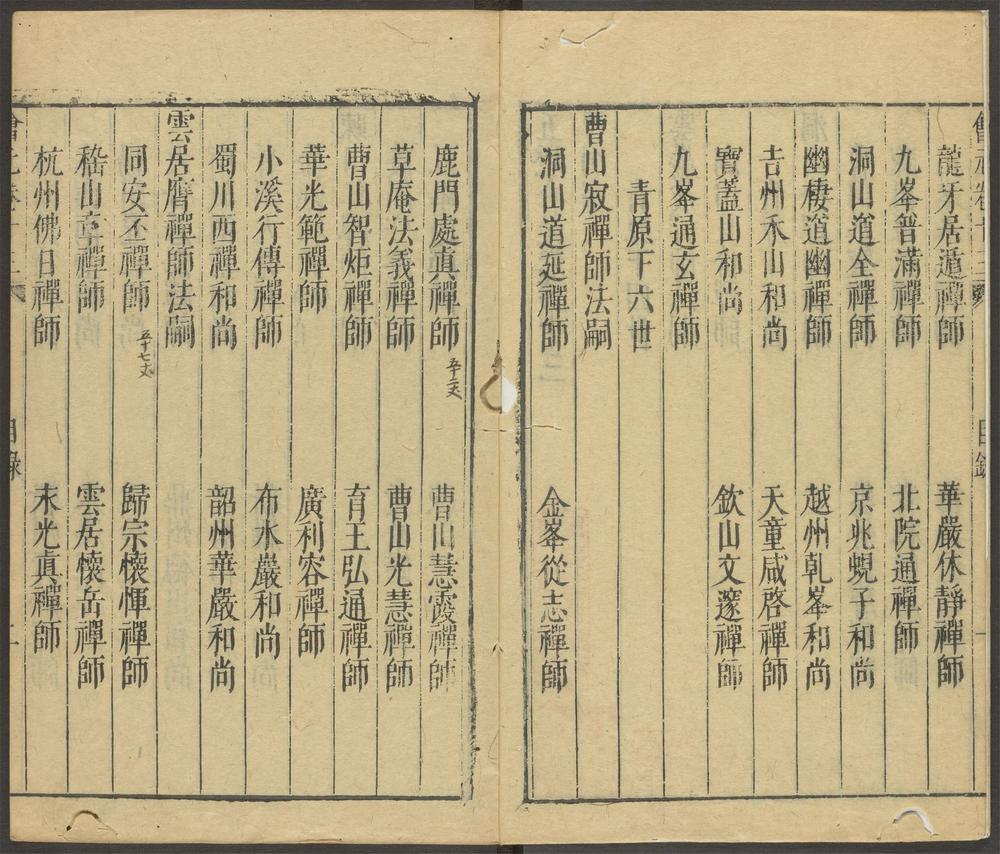 龍牙居遁禪師　華嚴休靜禪師
九峯普滿禪師　北院通禪師
洞山道全禪師　京兆蜆子和尚
幽棲道幽禪師　越州乾峯和尚
吉州禾山和尚　天童咸啓禪師
寶蓋山和尚　欽山文邃禪師
九峯通玄禪師
青原下六世
曹山寂禪師法嗣
洞山道延禪師　金峯從志禪師
鹿門處真禪師　曹山慧霞禪師
草庵法義禪師　曹山光慧禪師
曹山智炬禪師　育王弘通禪師
華光範禪師　廣利容禪師
小溪行傳禪師　布水巖和尚
蜀川西禪和尚　韶州華嚴和尚
雲居膺禪師法嗣
同安丕禪師　五十七丈　歸宗懷惲禪師
嵇山章禪師　雲居懷岳禪師
杭州佛日禪師　末光真禪師
目錄　二